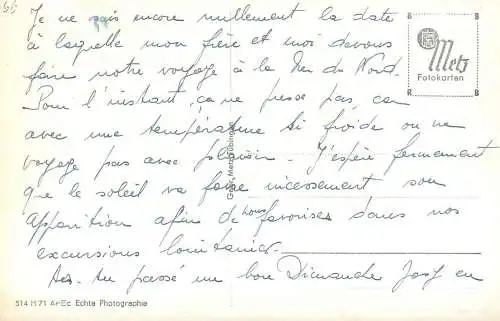 56
Je ne sais encore nullement la date
à laquelle mon frère et moi devons
faire notre voyage à la Mer du Nord.
Pour l'instant, ça ne presse pas, car
avec une température si froide on ne
voyage pas avec plaisir. J'espère fermement
que le soleil va faire incessement son
apparition afin de nous favoriser dans nos
excursions lointaines.
As-tu passé un bon Dimanche Josy en
G B
Metz
Fotokarten
R B
514 H 71 Echte Photographie